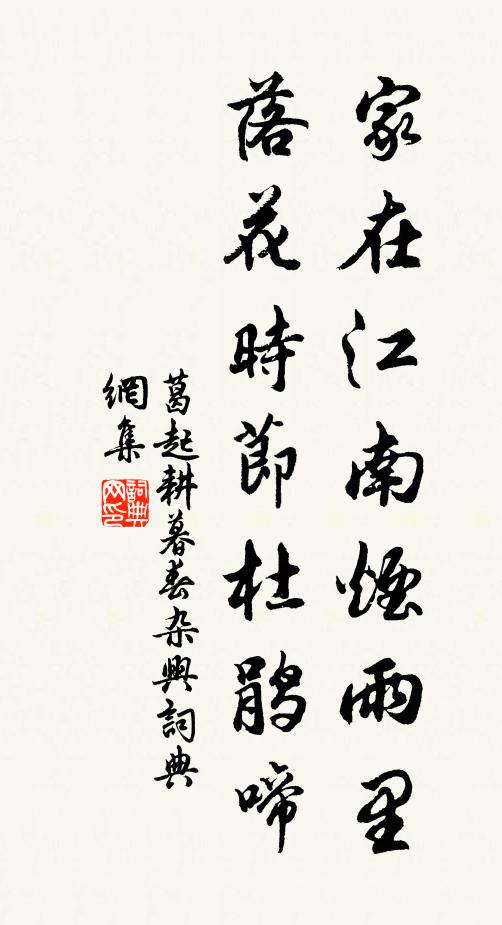 家在江南煙雨里
落花時節杜鵑啼
葛起耕暮春杂興詞典
網集
詞典网印